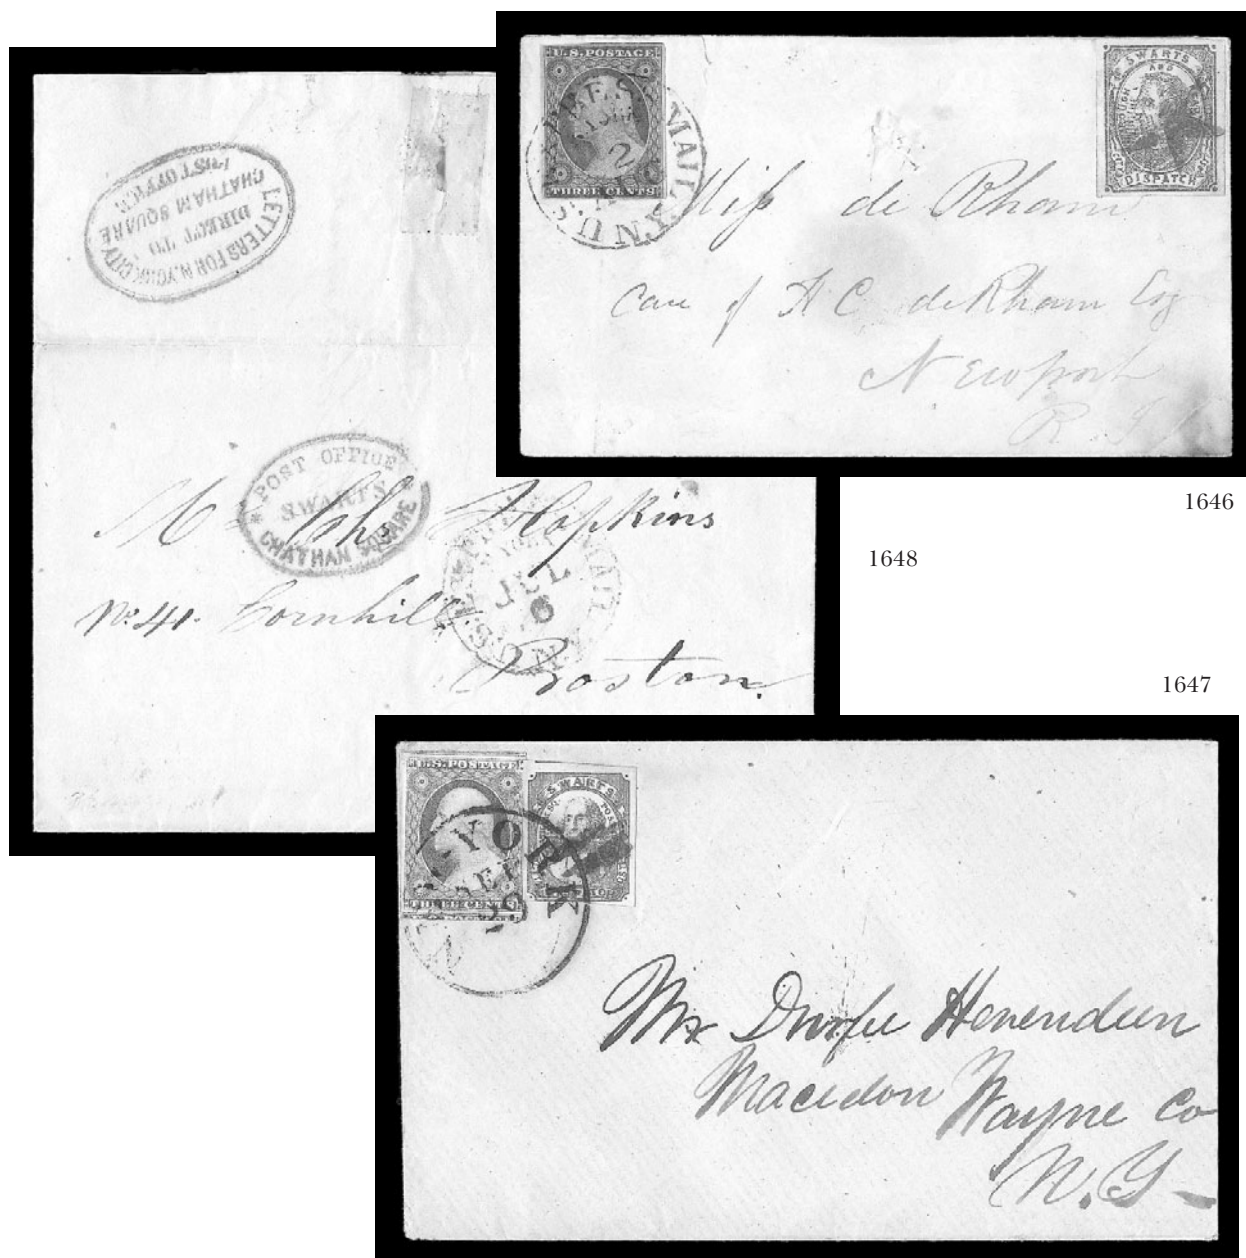 LETTERS FOR N. YORK CITY
DIRECT TO
CHATHAM SQUARE
POST OFFICE
POST OFFICE
SWARTS
CHATHAN SQUARE
Mr Chs Hopkins
No 41. Cornhill
Boston.
JUL
6
U.S. POSTAGE
THREE CENTS
EXPRESS MAIL
N.U.S.
2
SWARTS
AND
DISPATCH
Miss de Rham
care of H C de Rham Esq
Newport
R.I.
1646
1648
1647
U.S. POSTAGE
THREE CENTS
SWARTS
NEW-YORK
Mr
Macedon Wayne Co
N.Y